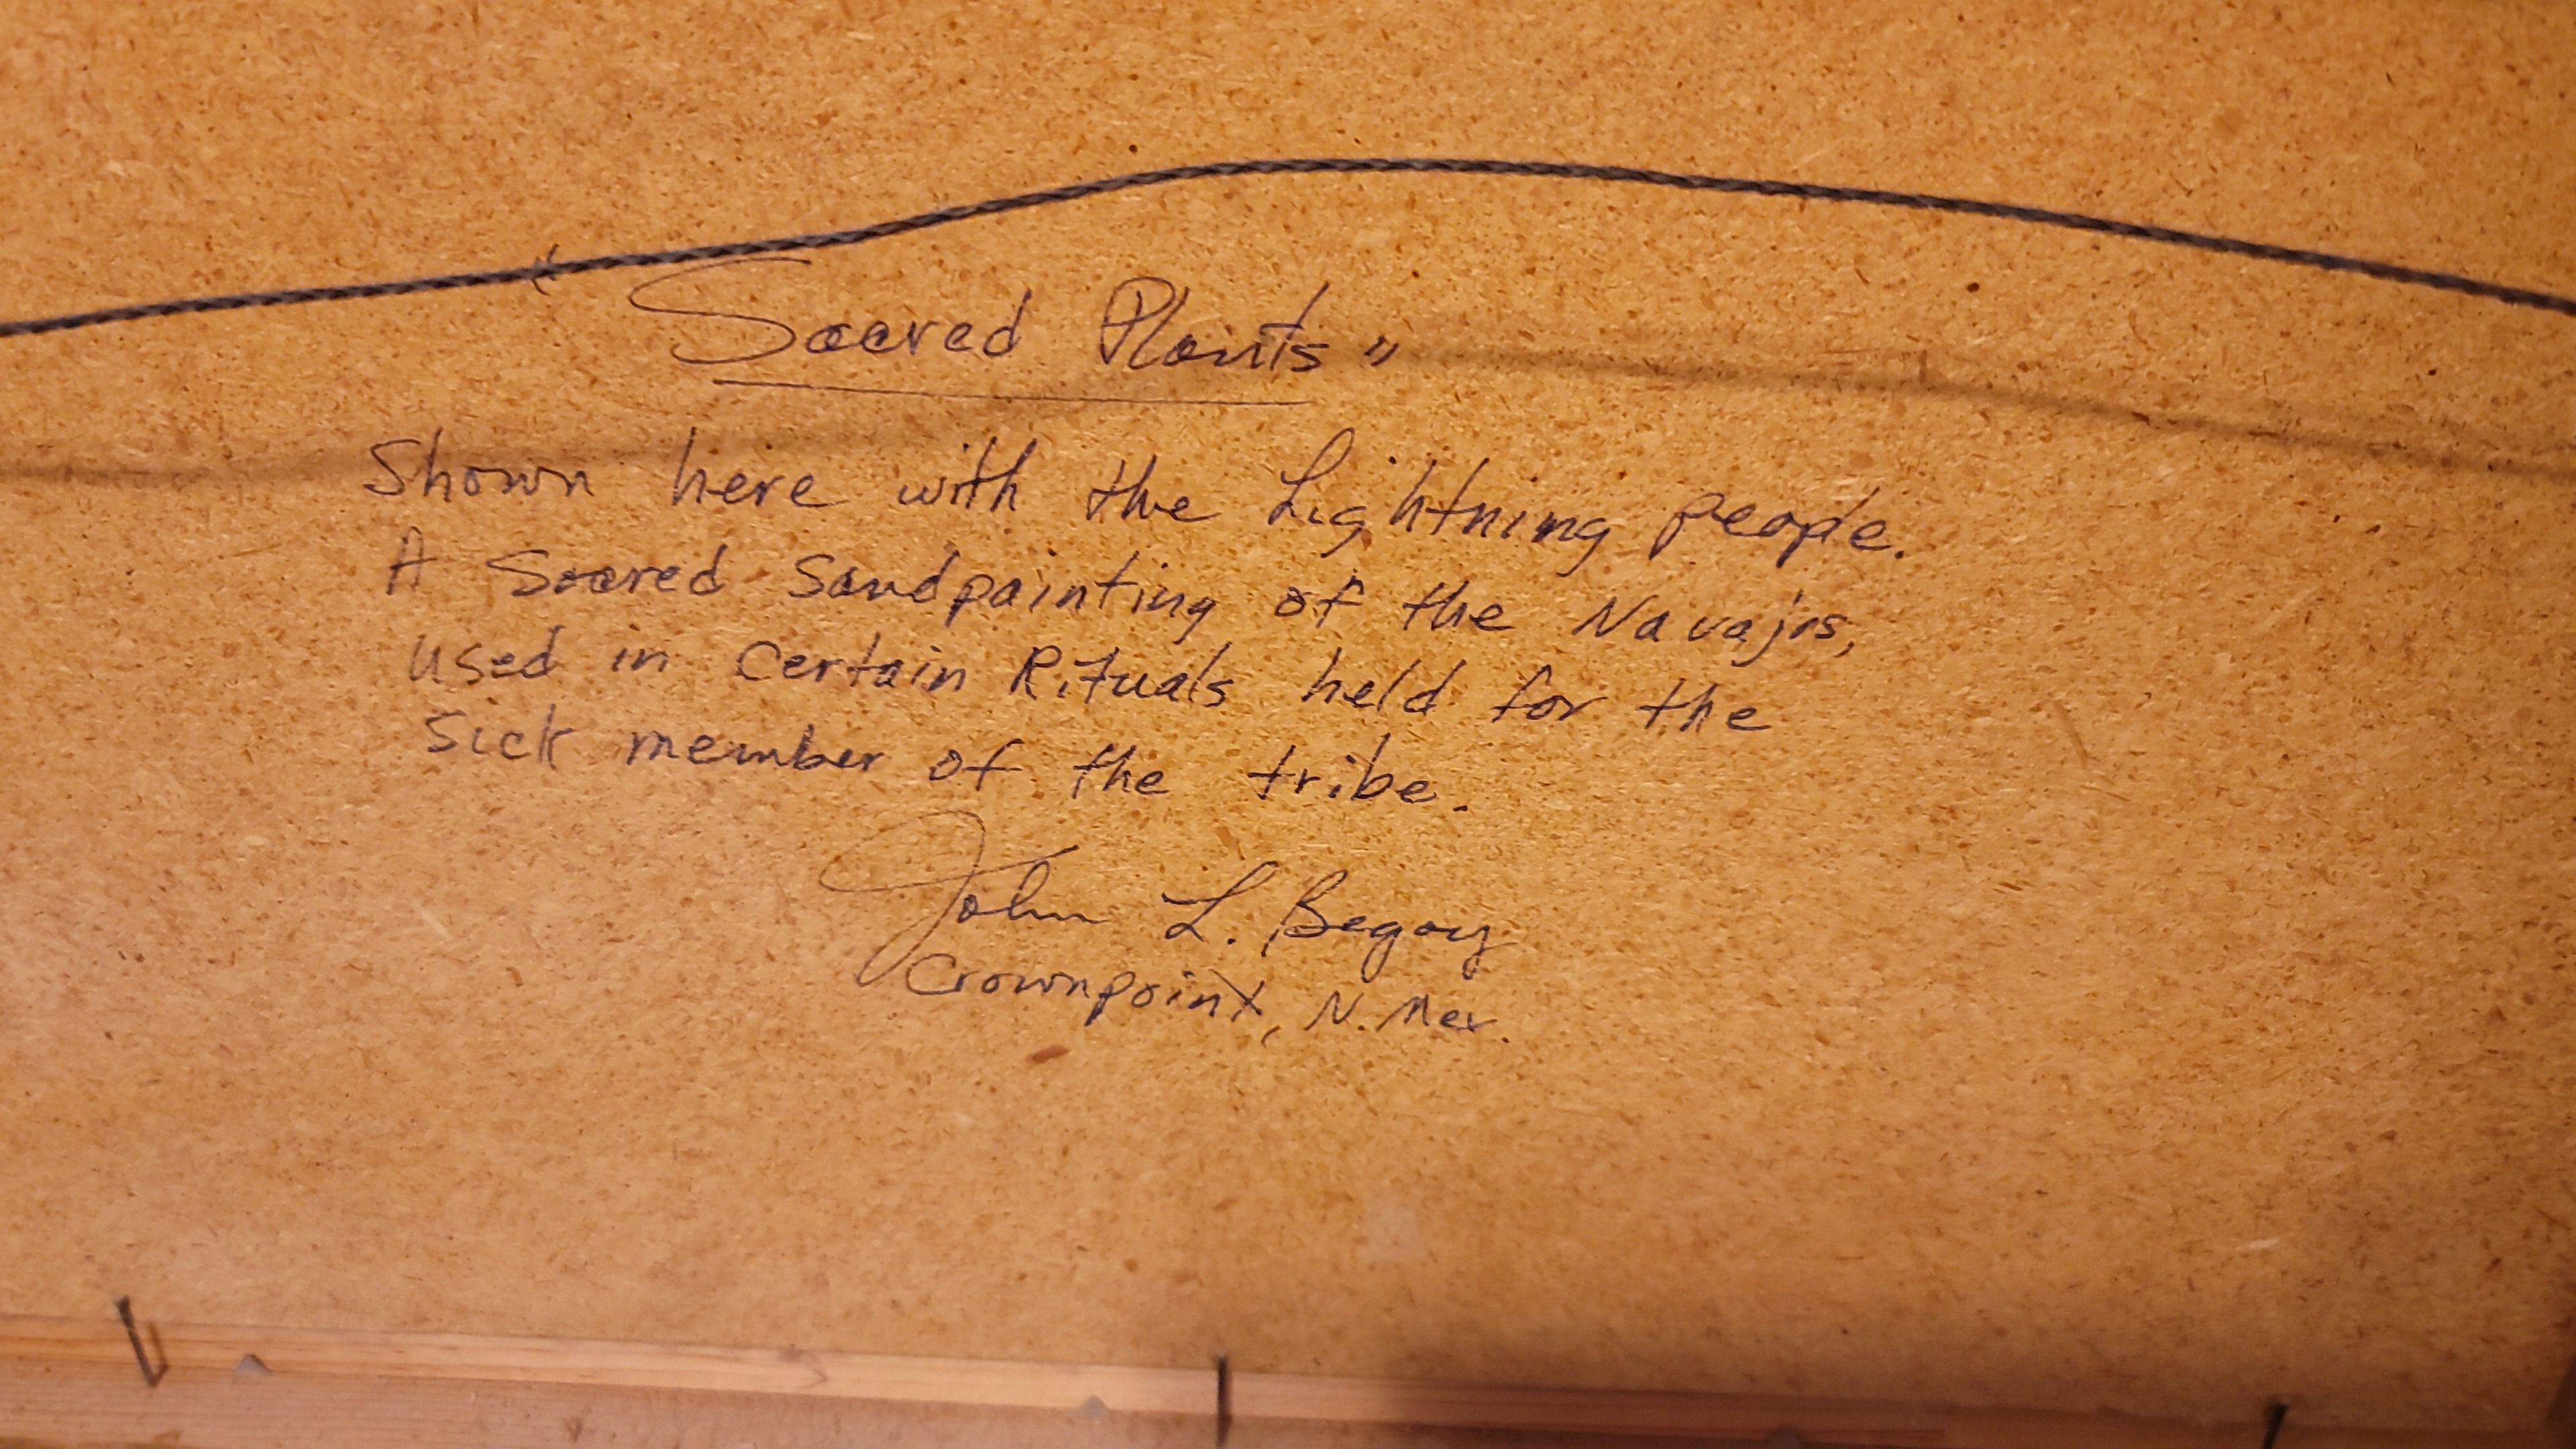 "Sacred Plants"
Shown here with the Lightning people.
A Sacred Sandpainting of the Navajos,
used in Certain Rituals held for the
sick member of the tribe.
John L. Begay
Crownpoint, N. Mex.